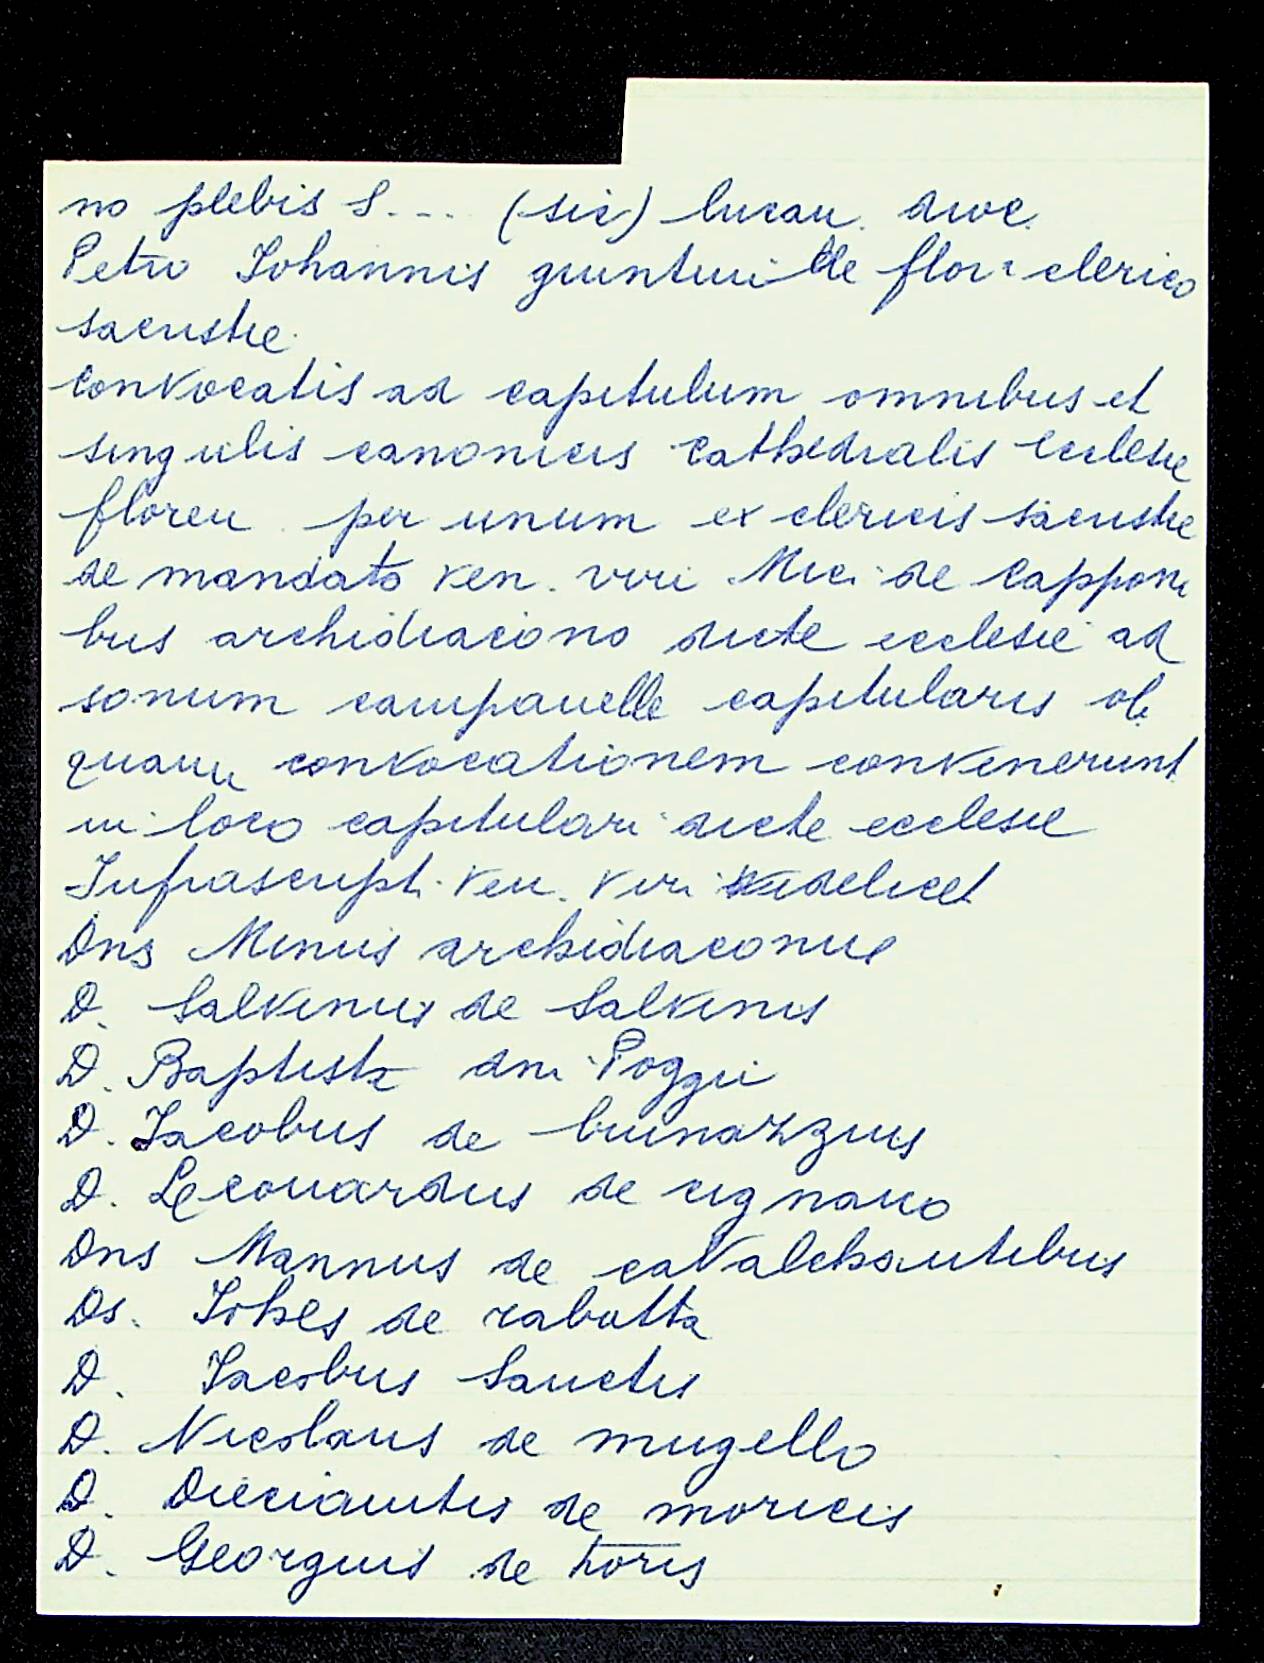 no plebis S... (sic) lucan. dioc.
Petro Iohannis giuntini de flor. clerico
sacristie.
Convocatis ad capitulum omnibus et
singulis canonicis cathedralis ecclesie
floren. per unum ex clericis sacristie
de mandato ven. viri Mici de Cappon
bus archidiacono dicte ecclesie ad
sonum campanelle capitularis ob
quam convocationem convenerunt
in loco capitulari dicte ecclesie
Infrascripti ven. viri videlicet
Dns Minus archidiaconus
D. Salvinus de Salvinis
D. Baptista dni Poggii
D. Iacobus de
D. Leonardus de cignano
Dns Mannus de cavalchantibus
Ds. Iohes de rabatta
D. Iacobus Sanctis
D. Nicolaus de mugello
D. Dieciaiutis de moricis
D. Georgius de horis